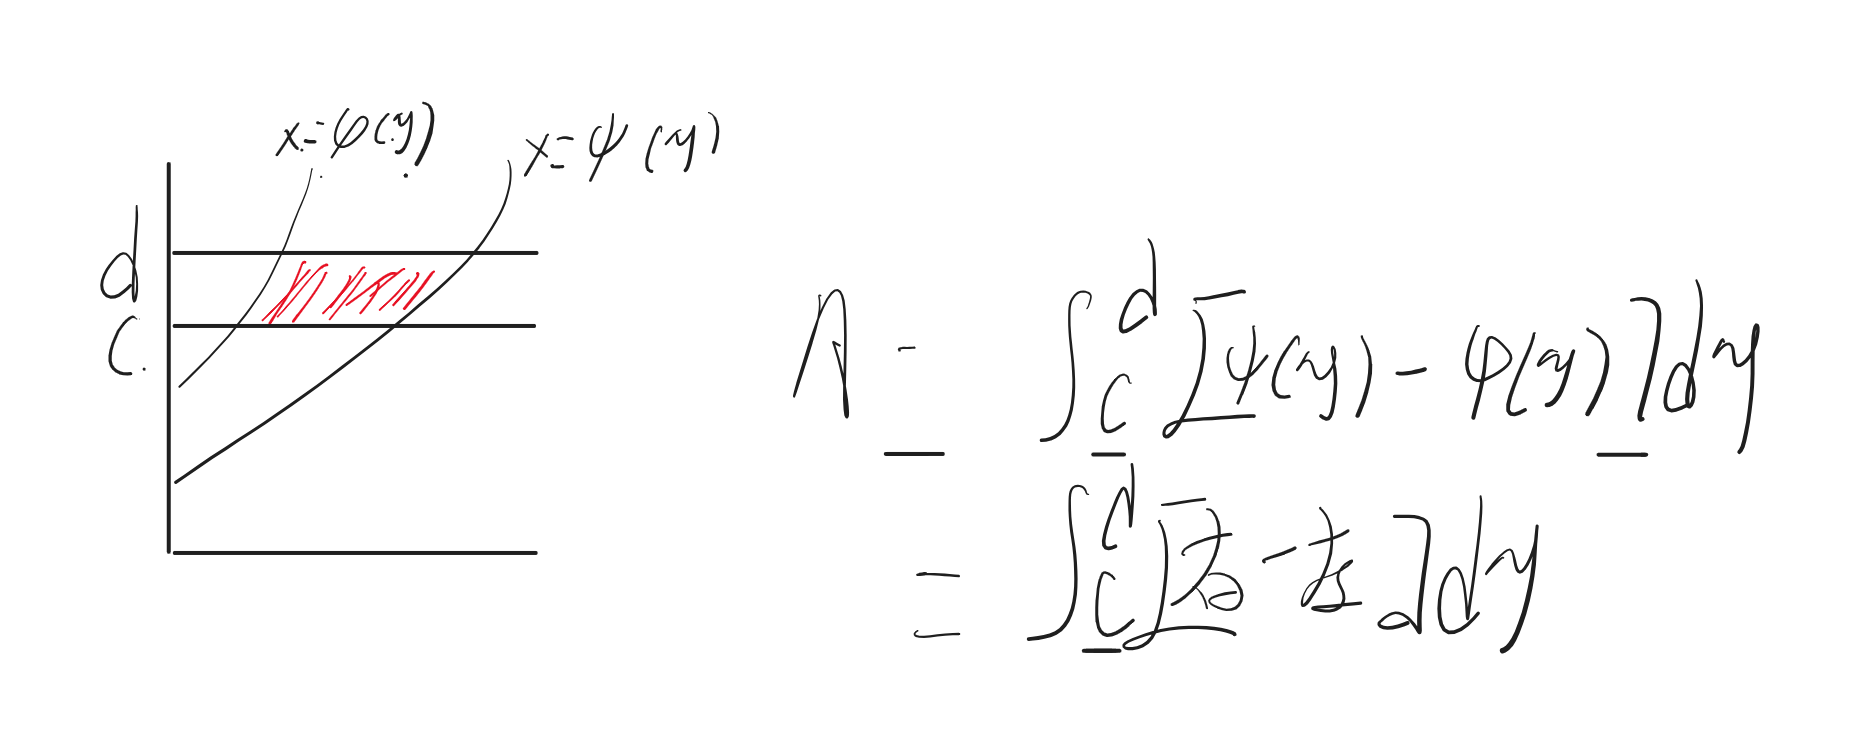 x=φ(y)
x=ψ(y)
d
c
A = ∫_c^d [ψ(y) - φ(y)]dy
= ∫_c^d [右 - 左]dy